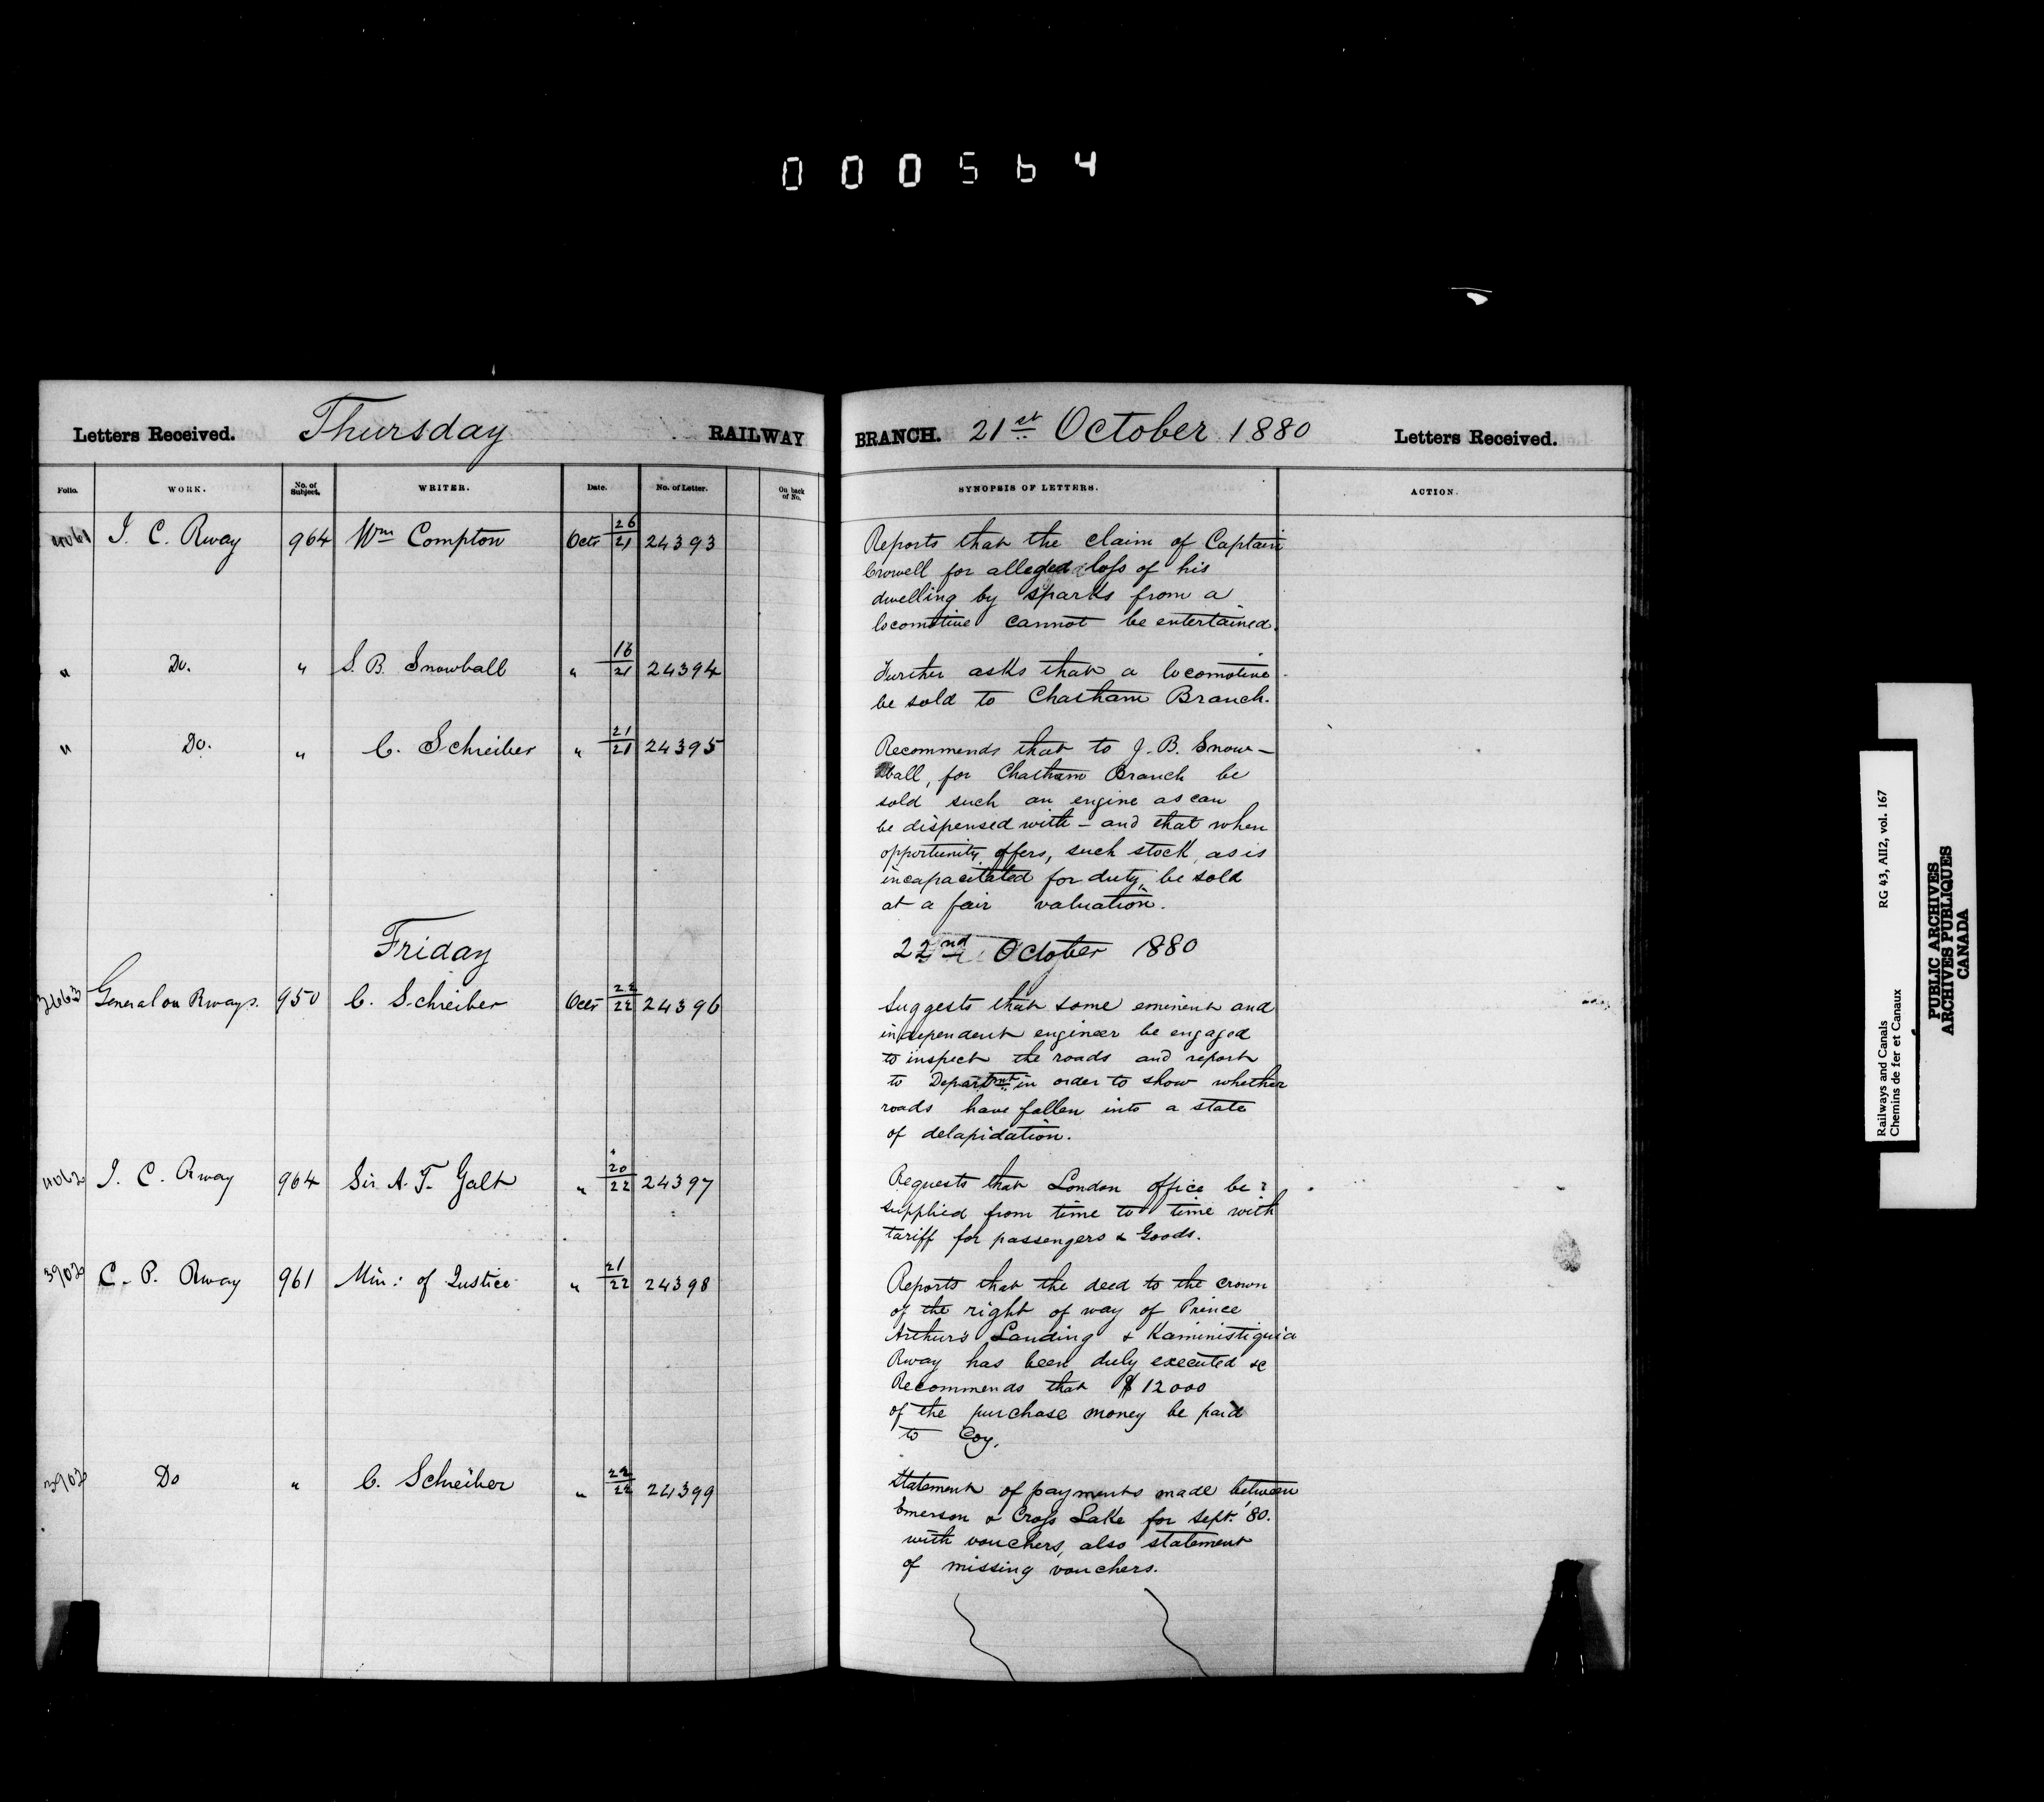 000564
Letters Received. Thursday RAILWAY BRANCH. 21st October 1880 Letters Received.
Folio. WORK. No. of Subject. WRITER. Date. No. of Letter. On back of No. SYNOPSIS OF LETTERS. ACTION.
4061 I. C. Rway 964 Wm Compton Octr 26/21 24393 Reports that the claim of Captain
Crowell for alleged loss of his
dwelling by sparks from a
locomotive cannot be entertained.
" Do. " S. B. Snowball " 16/21 24394 Further asks that a locomotive
be sold to Chatham Branch.
" Do. " C. Schreiber " 21/21 24395 Recommends that to J. B. Snow-
ball, for Chatham Branch be
sold such an engine as can
be dispensed with - and that when
opportunity offers, such stock, as is
incapacitated for duty, be sold
at a fair valuation.
Friday 22nd October 1880
3663 General on Rways. 950 C. Schreiber Octr 22/22 24396 Suggests that some eminent and
independent engineer be engaged
to inspect the roads and report
to Departmt in order to show whether
roads have fallen into a state
of delapidation.
4062 I. C. Rway 964 Sir A. T. Galt " 20/22 24397 Requests that London office be
supplied from time to time with
tariff for passengers & Goods.
3902 C. P. Rway 961 Min: of Justice " 21/22 24398 Reports that the deed to the crown
of the right of way of Prince
Arthur's Landing & Kaministiquia
Rway has been duly executed &c
Recommends that $12000
of the purchase money be paid
to Coy.
3902 Do " C. Schreiber " 22/22 24399 Statement of payments made between
Emerson & Cross Lake for Sept. '80.
with vouchers, also statement
of missing vouchers.
Railways and Canals RG 43, AII2, vol. 167
Chemins de fer et Canaux
PUBLIC ARCHIVES
ARCHIVES PUBLIQUES
CANADA